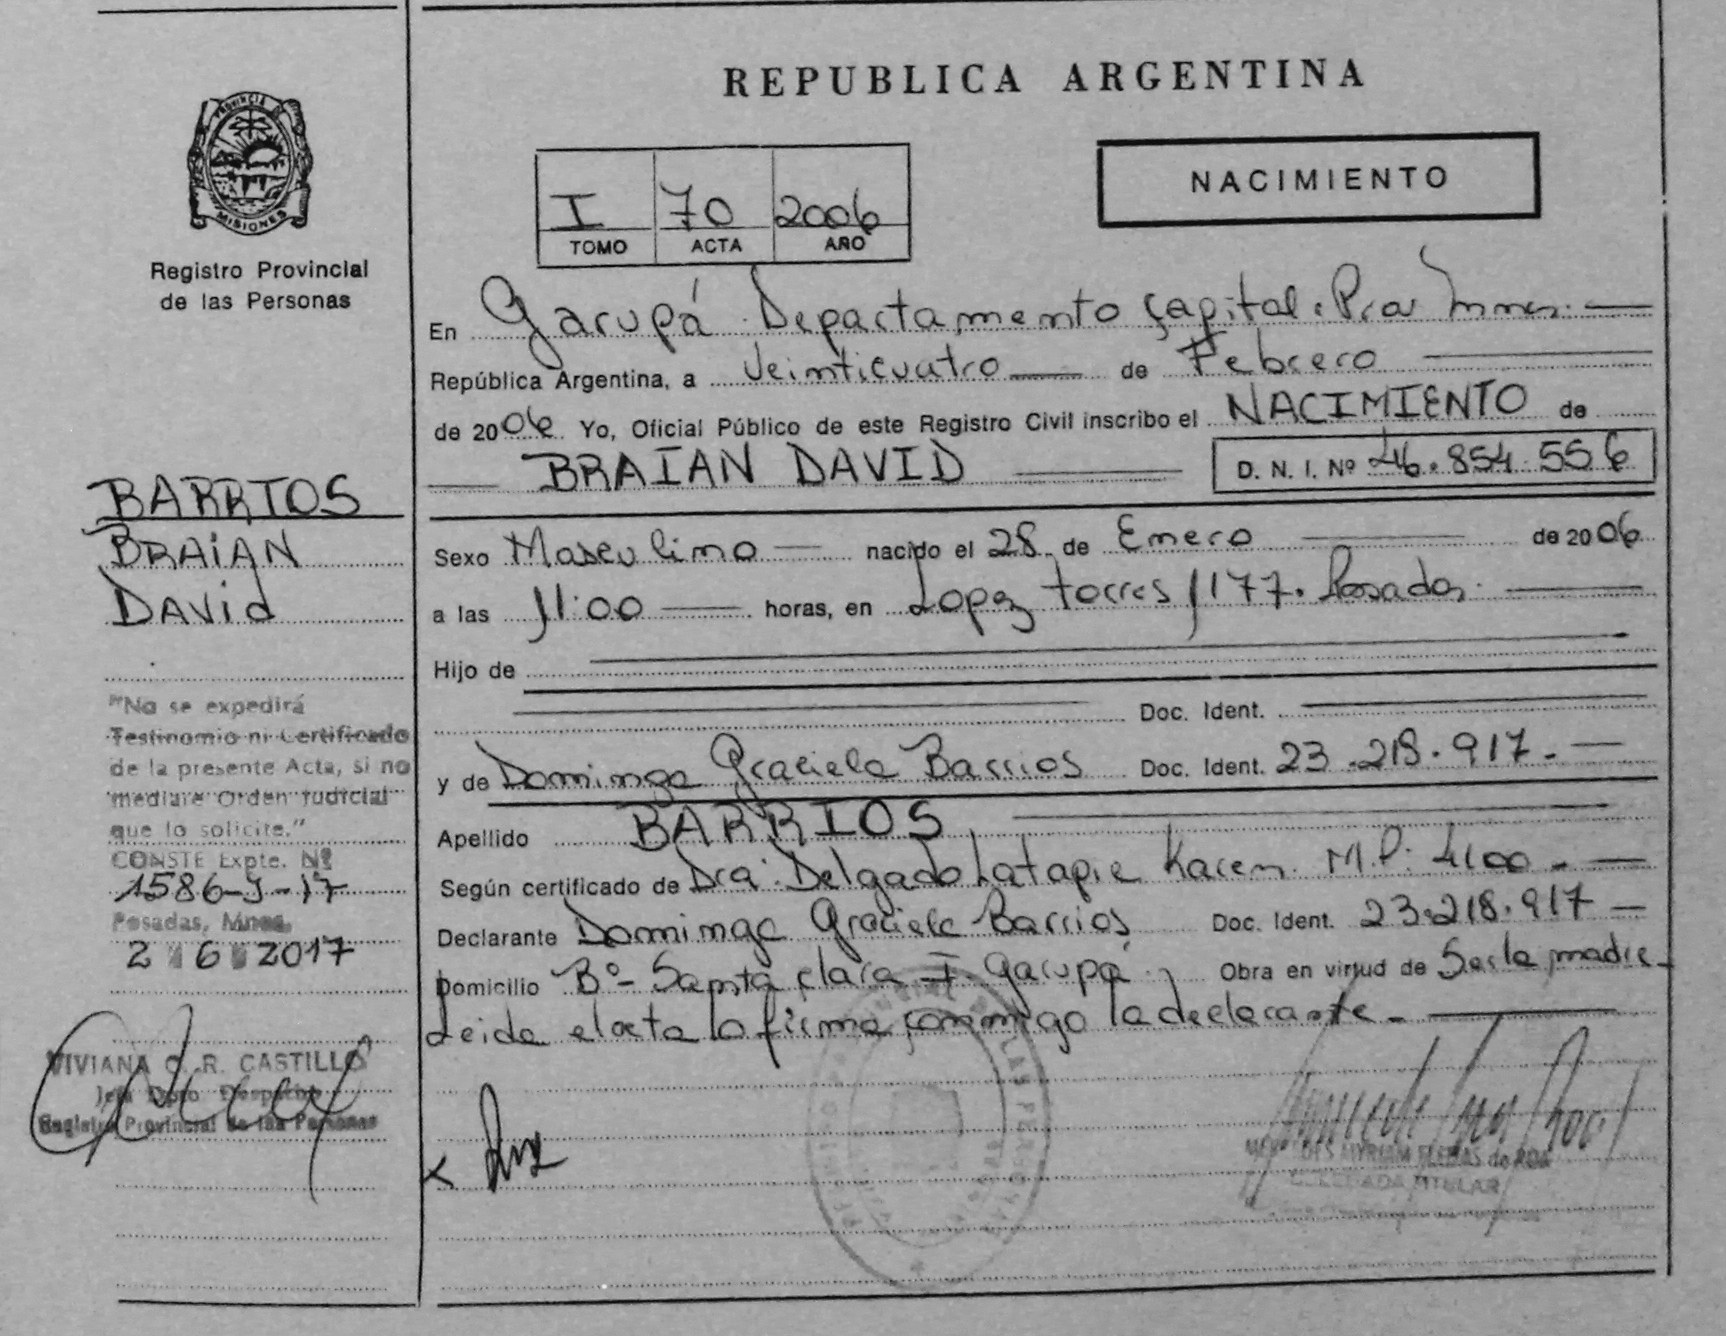 REPUBLICA ARGENTINA
PROVINCIA DE
MISIONES
Registro Provincial
de las Personas
I 70 2006
TOMO ACTA AÑO
NACIMIENTO
En Garupá Departamento Capital
República Argentina, a Veinticuatro de Febrero
de 2006 Yo, Oficial Público de este Registro Civil inscribo el NACIMIENTO de
BRAIAN DAVID D. N. I. Nº 46.854.556
Sexo Masculino nacido el 28 de Enero de 2006
a las 11:00 horas, en Lopez Torres 1177. Posadas.
Hijo de
Doc. Ident.
y de Dominga Graciela Barrios Doc. Ident. 23.218.917.-
Apellido BARRIOS
Según certificado de Dra. Delgado Latapie Karen M.P: 4100.-
Declarante Dominga Graciela Barrios Doc. Ident. 23.218.917-
Domicilio Bº- Santa Clara I Garupá Obra en virtud de Ser la madre
Leida el acta la firma conmigo la declarante.-
BARRIOS
BRAIAN
DAVID
"No se expedirá
Testimonio ni Certificado
de la presente Acta, si no
mediare Orden Judicial
que lo solicite."
CONSTE Expte. Nº
1586-J-17
Posadas, Mnes.
2 6 2017
VIVIANA C. R. CASTILLO
Jefa Dpto Despacho
Registro Provincial de las Personas
MYRIAM de ROA
DELEGADA TITULAR